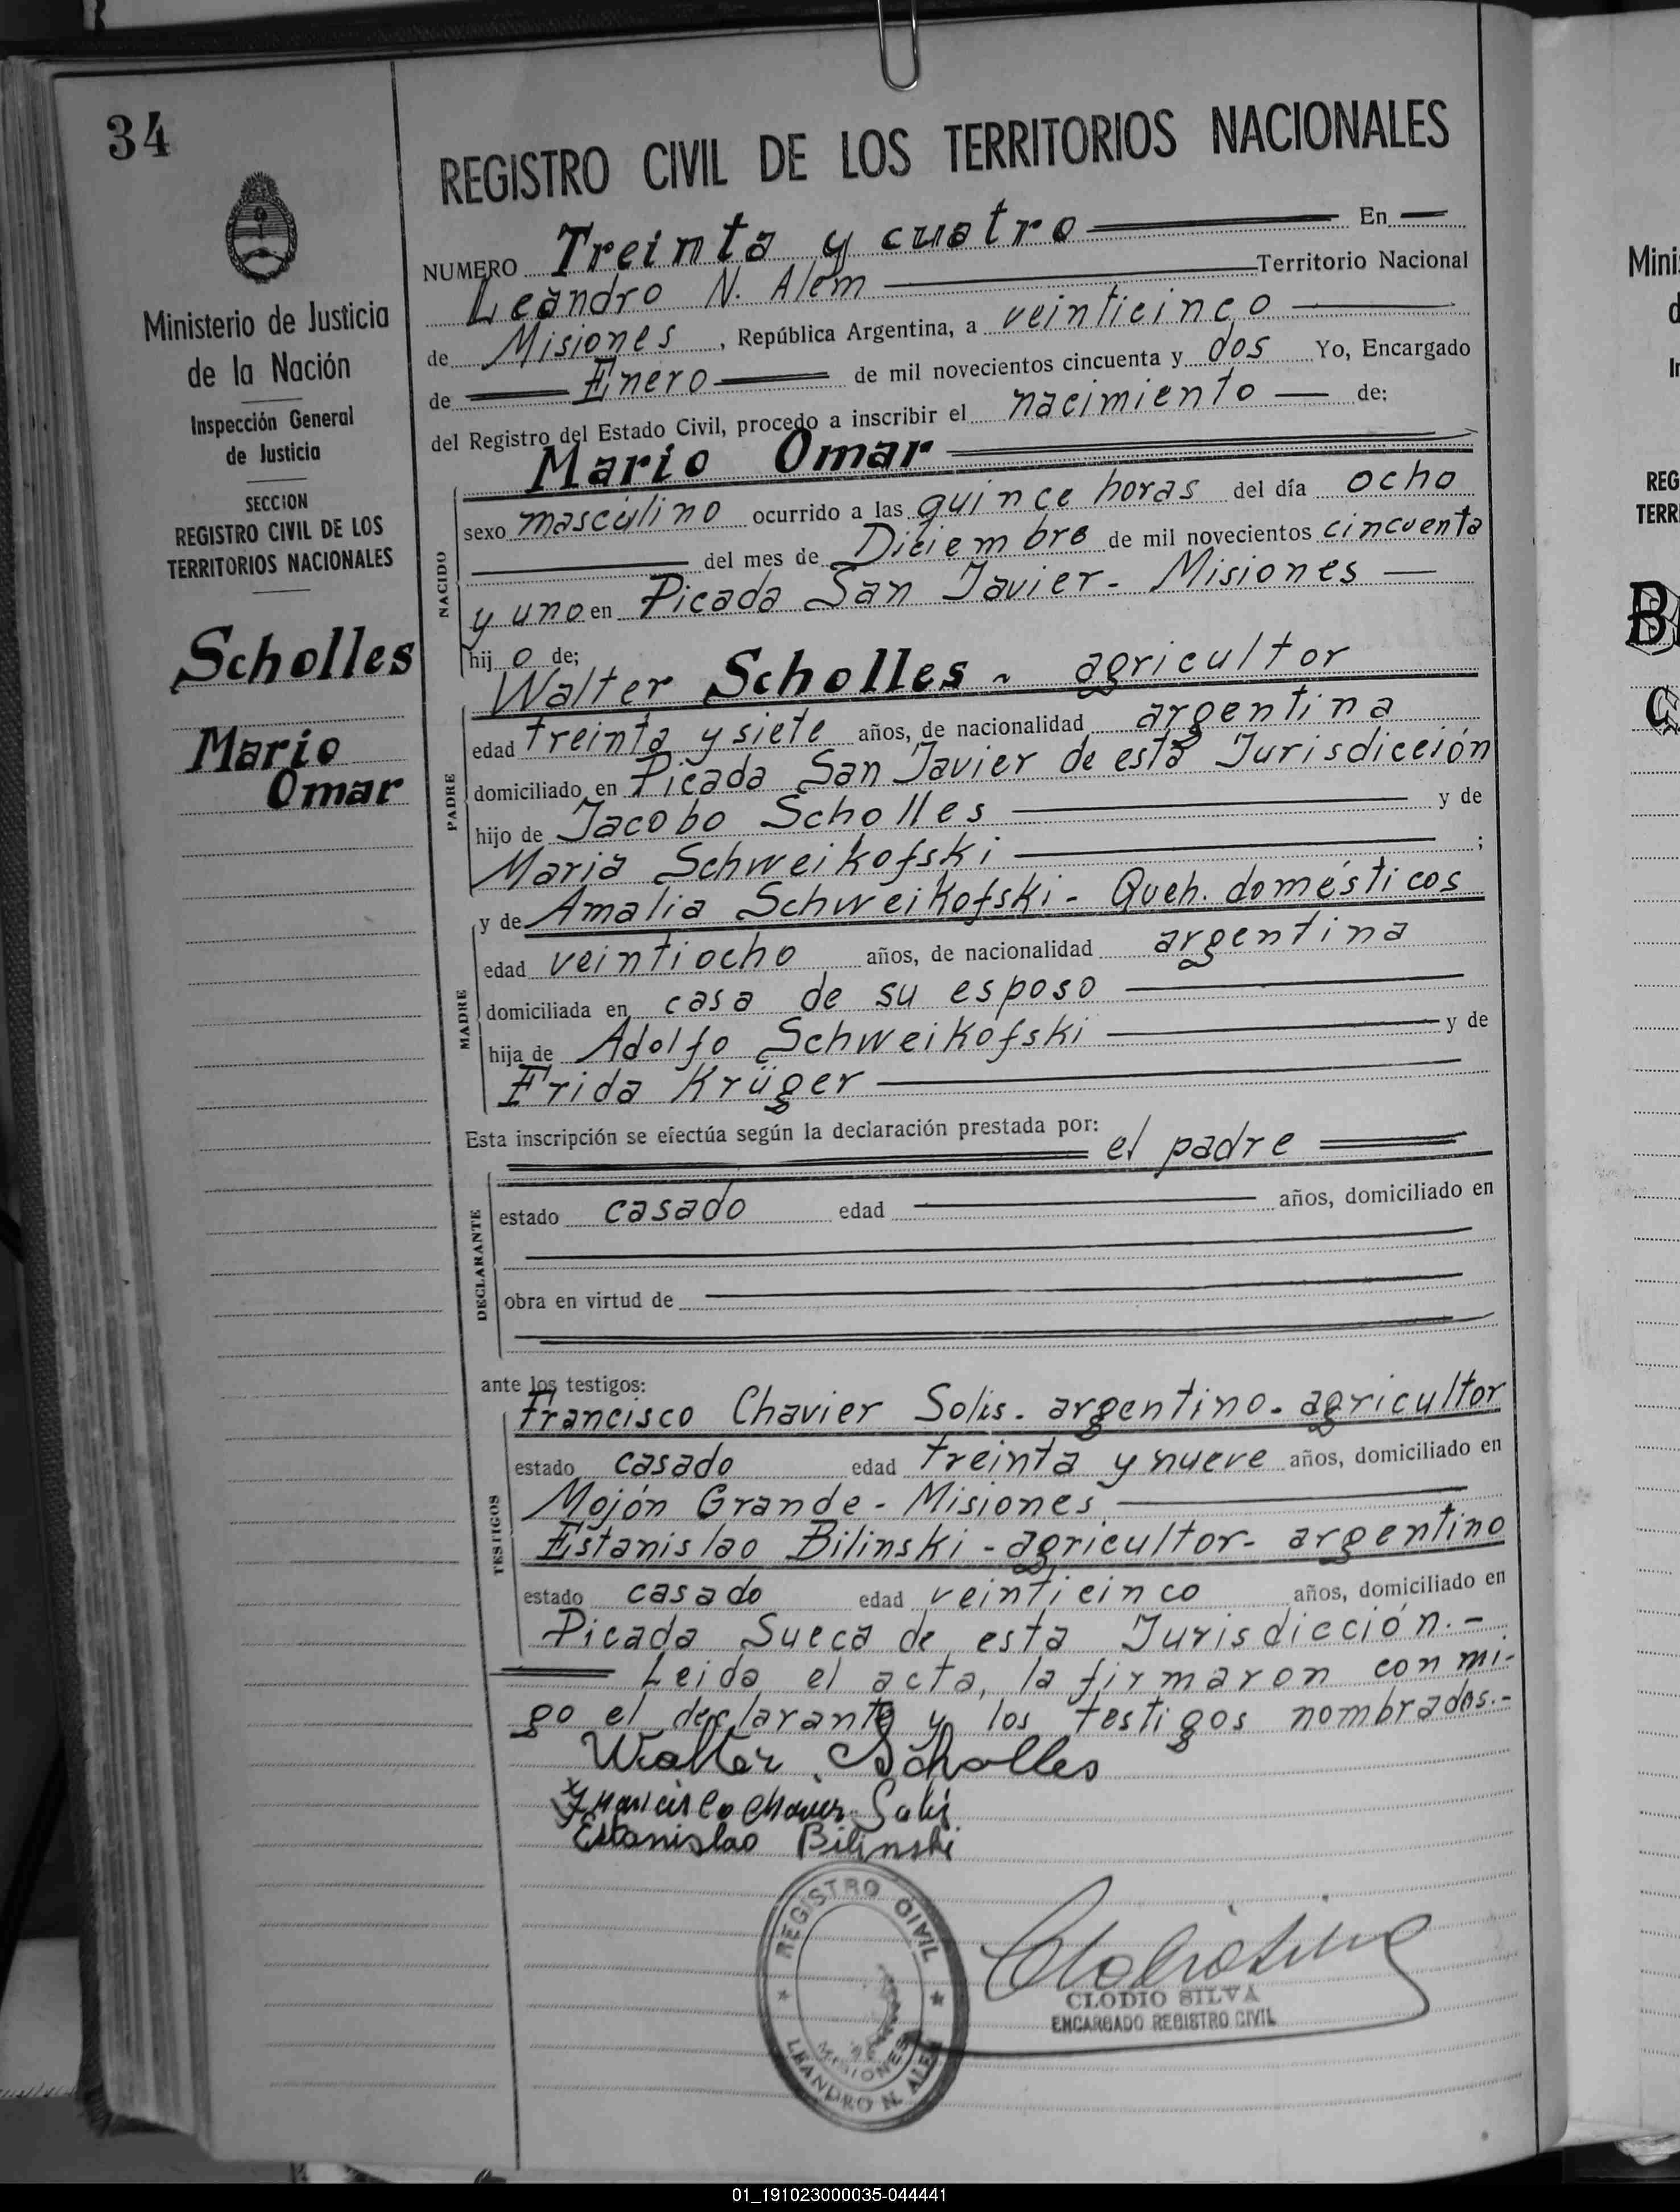 34
Ministerio de Justicia
de la Nación
Inspección General
de Justicia
SECCION
REGISTRO CIVIL DE LOS
TERRITORIOS NACIONALES
Scholles
Mario
Omar
REGISTRO CIVIL DE LOS TERRITORIOS NACIONALES
NUMERO Treinta y cuatro En
Leandro N. Alem Territorio Nacional
de Misiones, República Argentina, a veinticinco
de Enero de mil novecientos cincuenta y dos Yo, Encargado
del Registro del Estado Civil, procedo a inscribir el nacimiento de:
Mario Omar
NACIDO
sexo masculino ocurrido a las quince horas del día ocho
del mes de Diciembre de mil novecientos cincuenta
y uno en Picada San Javier - Misiones
hijo de;
Walter Scholles - agricultor
PADRE
edad treinta y siete años, de nacionalidad argentina
domiciliado en Picada San Javier de esta Jurisdicción
hijo de Jacobo Scholles y de
Maria Schweikofski ;
y de Amalia Schweikofski - Queh. domésticos
MADRE
edad veintiocho años, de nacionalidad argentina
domiciliada en casa de su esposo
hija de Adolfo Schweikofski y de
Frida Krüger
Esta inscripción se efectúa según la declaración prestada por:
el padre
DECLARANTE
estado casado edad años, domiciliado en
obra en virtud de
ante los testigos:
Francisco Chavier Solis. argentino - agricultor
TESTIGOS
estado casado edad treinta y nueve años, domiciliado en
Mojón Grande - Misiones
Estanislao Bilinski - agricultor - argentino
estado casado edad veinticinco años, domiciliado en
Picada Sueca de esta Jurisdicción.-
Leida el acta, la firmaron conmi-
go el declarante y los testigos nombrados.-
Walter Scholles
Estanislao Bilinski
REGISTRO CIVIL
MISIONES
LEANDRO N. ALEM
CLODIO SILVA
ENCARGADO REGISTRO CIVIL
Mini
REG
TERR
01_191023000035-044441